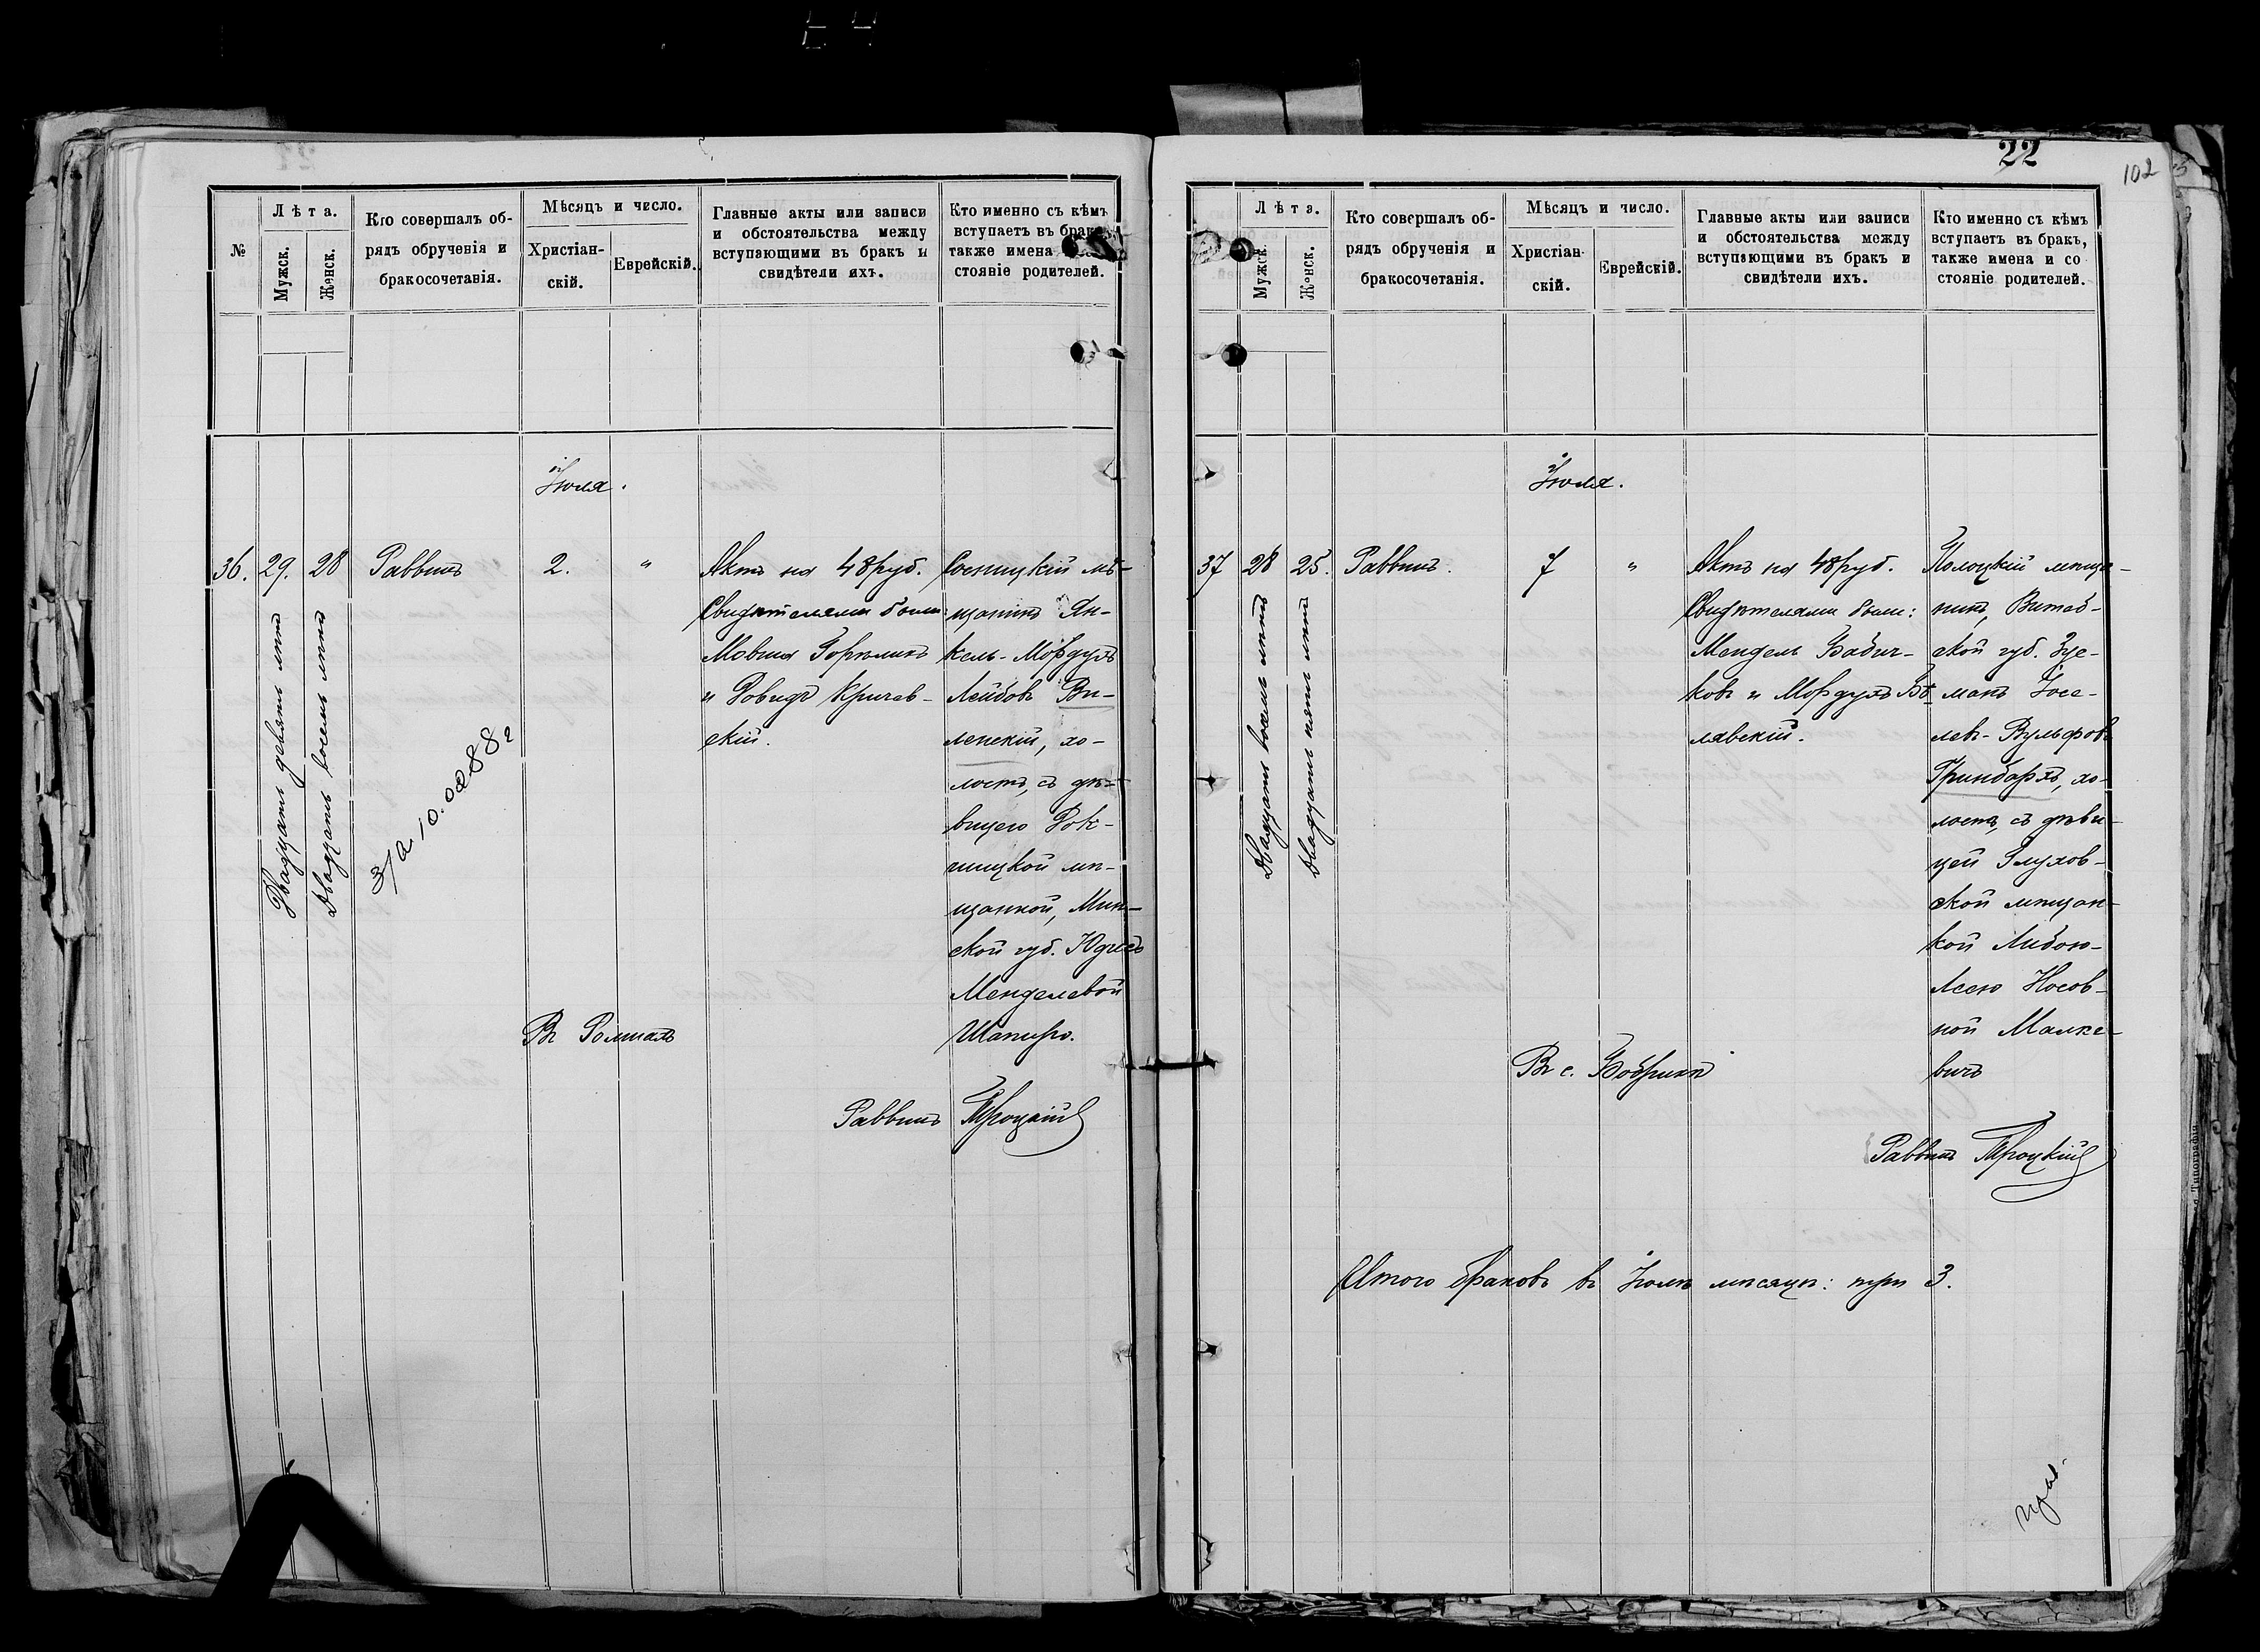 №
Лѣта.
Мужск.
Женск.
Кто совершалъ об-
рядъ обрученія и
бракосочетанія.
Мѣсяцъ и число.
Христіан-
скій.
Еврейскій.
Главные акты или записи
и обстоятельства между
вступающими въ бракъ и
свидѣтели ихъ.
Кто именно съ кѣмъ
вступаетъ въ бракъ,
также имена
стояніе родителей.
Іюля.
36. 29. 28 Раввинъ 2. "
Двадцать девять лѣтъ
Двадцать восемь лѣтъ
Актъ на 48 руб.
Свидѣтелями были:
Мовша Горѣликъ
и Довидъ Кричев-
скій.
Сосницкій мѣ-
щанинъ Ян-
кель-Мордухъ
Лейбовъ Ви-
ленскій, хо-
лостъ, съ дѣ-
вицею Рок-
шицкой мѣ-
щанкой, Мин-
ской губ. Юдисъ
Менделевой
Шапиро.
Въ Ромнахъ
Раввинъ Троцкій
22
102
Лѣта.
Мужск.
Женск.
Кто совершалъ об-
рядъ обрученія и
бракосочетанія.
Мѣсяцъ и число.
Христіан-
скій.
Еврейскій.
Главные акты или записи
и обстоятельства между
вступающими въ бракъ и
свидѣтели ихъ.
Кто именно съ кѣмъ
вступаетъ въ бракъ,
также имена и со
стояніе родителей.
Іюля.
37 28 25. Раввинъ. 7 "
Двадцать восемь лѣтъ
Двадцать пять лѣтъ
Актъ на 48 руб.
Свидѣтелями были:
Мендель Бабич-
ковъ и Мордухъ Бѣ-
лявскій.
Полоцкій мѣща-
нинъ, Витеб-
ской губ. Зус-
манъ Іосе-
левъ-Вульфовъ
Гринбархъ, хо-
лостъ, съ дѣви-
цей Глухов-
ской мѣщан-
кой Либою-
Асею Носов-
ной Малке-
вичъ
Въ с. Бобрикѣ
Раввинъ Троцкій
Итого браковъ въ Іюлѣ мѣсяцѣ: три 3.